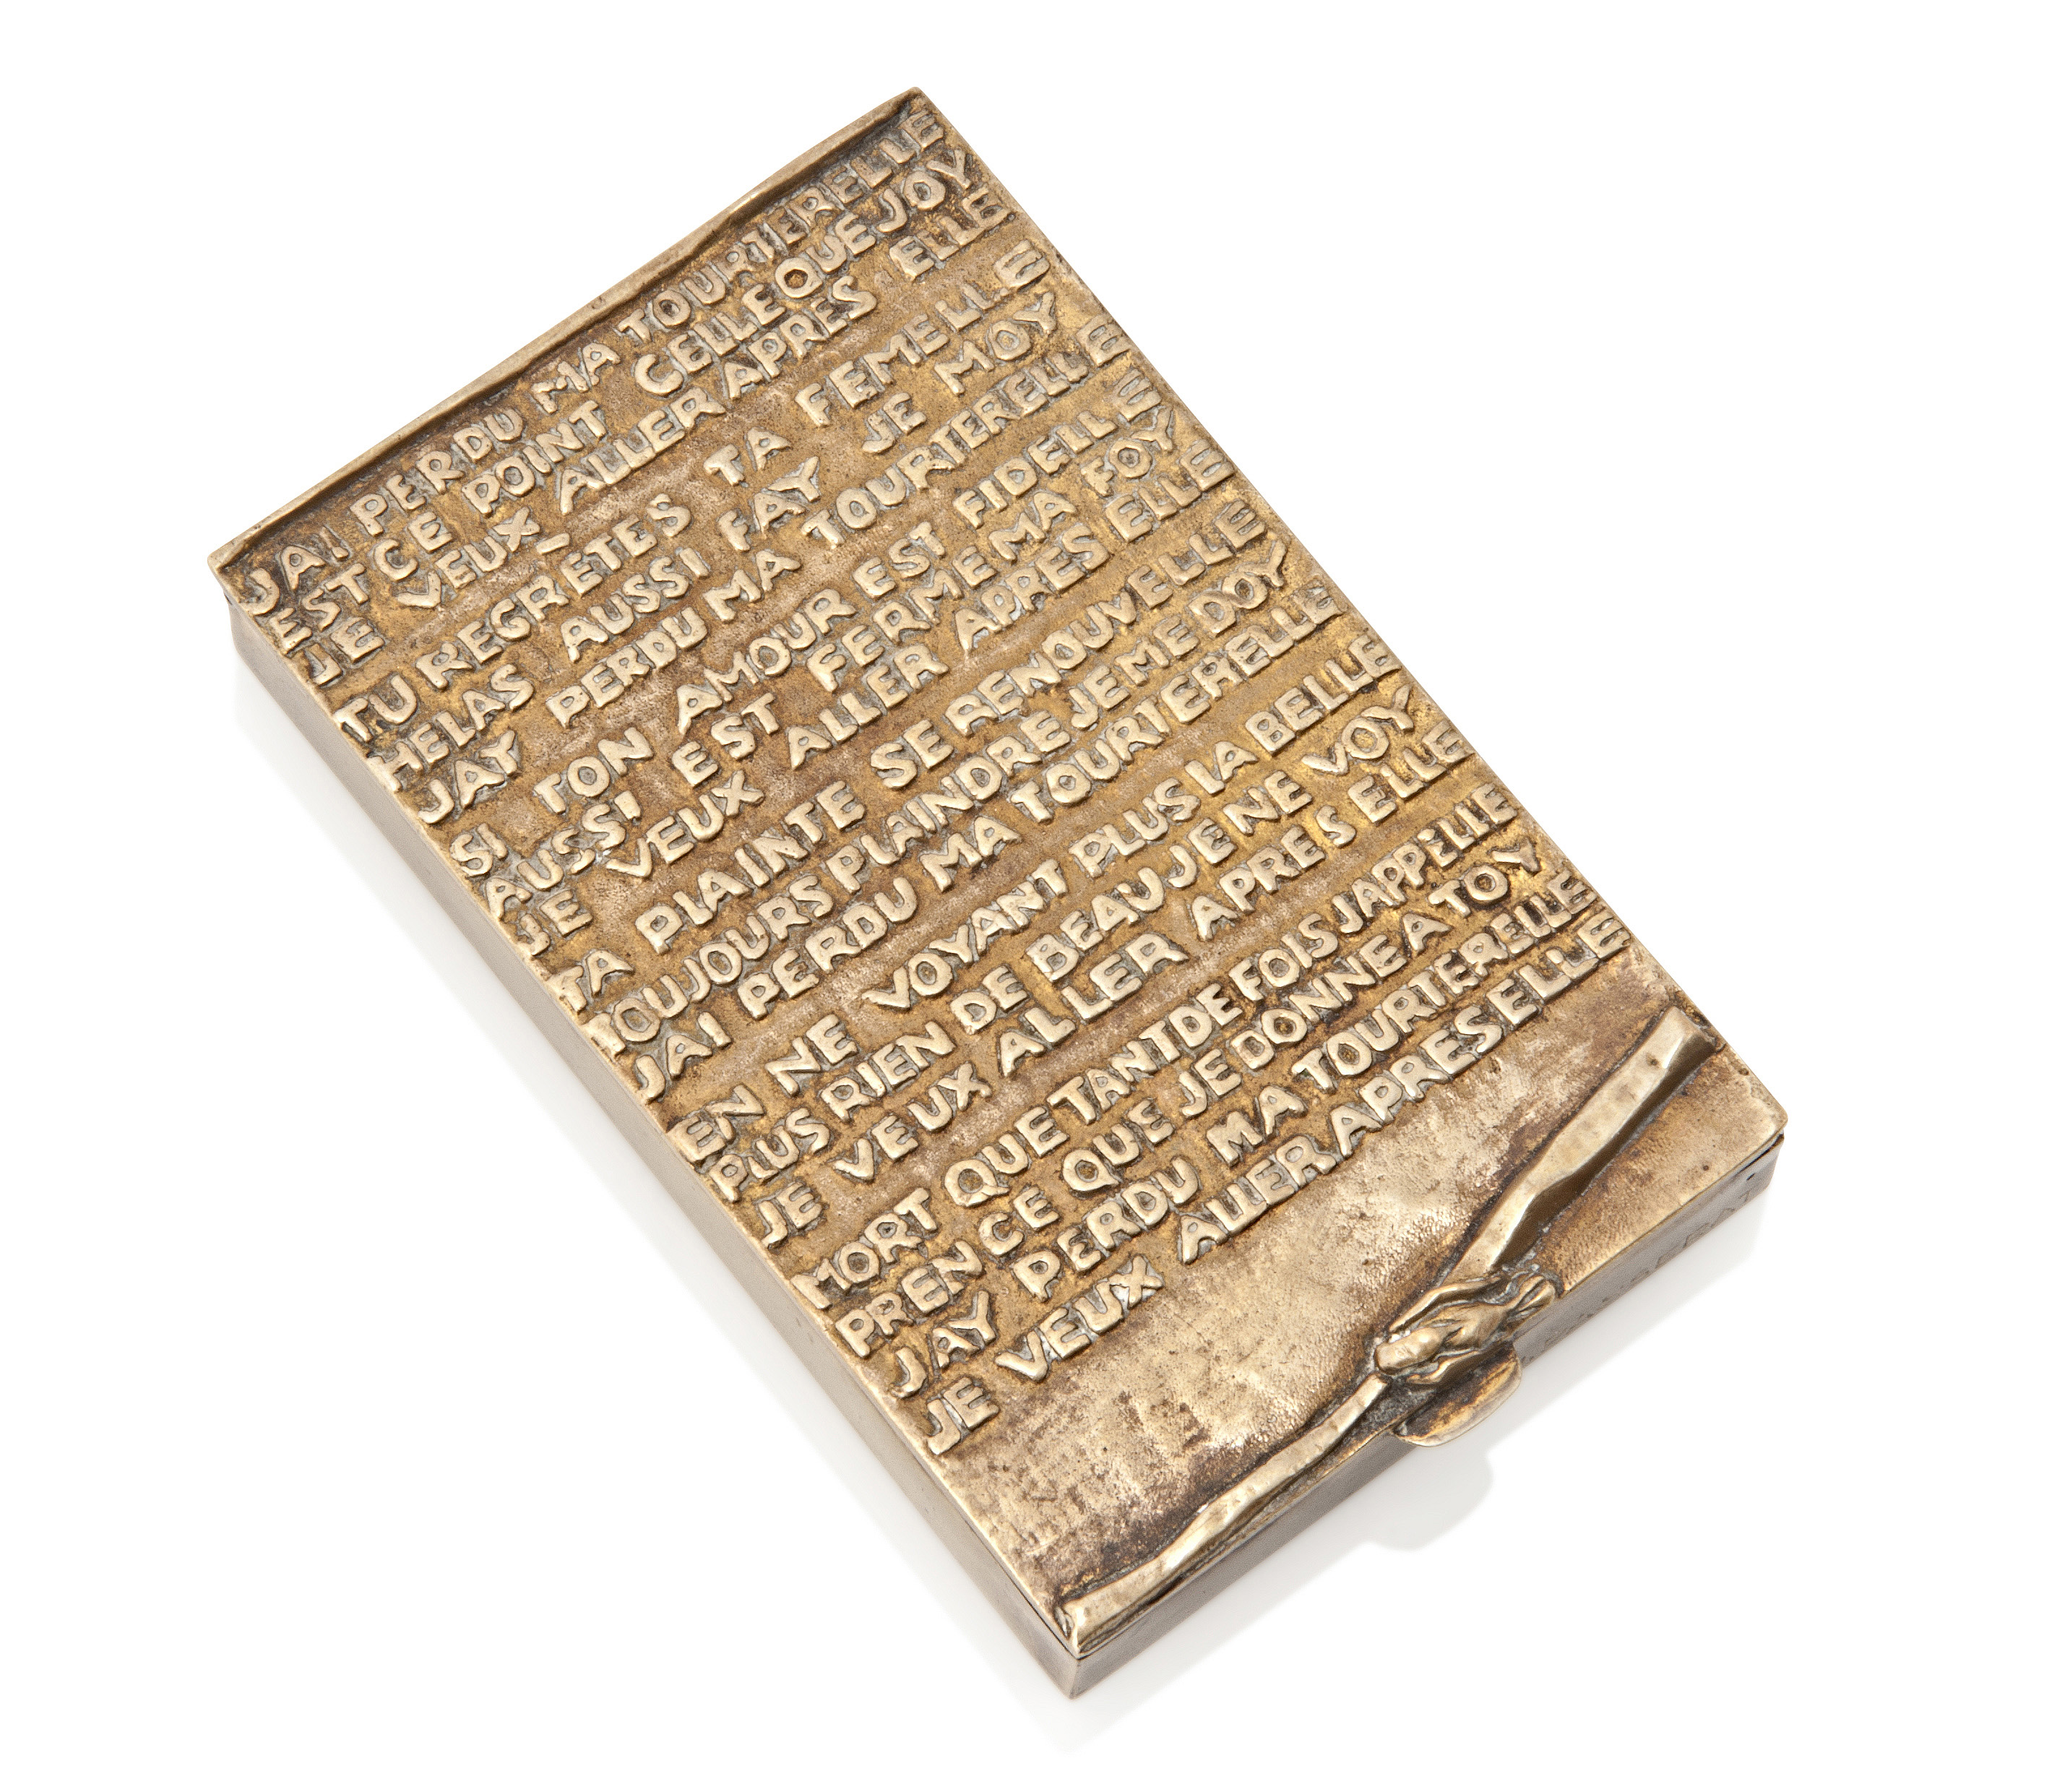 JAI PERDU MA TOURTERELLE
EST CE POINT CELLE QUE JOY
JE VEUX- ALLER APRES ELLE
TU REGRETES TA FEMELLE
HELAS AUSSI FAY JE MOY
JAY PERDU MA TOURTERELLE
SI TON AMOUR EST FIDELLE
AUSSI EST FERME MA FOY
JE VEUX ALLER APRES ELLE
TA PLAINTE SE RENOUVELLE
TOUJOURS PLAINDRE JE ME DOY
JAI PERDU MA TOURTERELLE
EN NE VOYANT PLUS LA BELLE
PLUS RIEN DE BEAU JE NE VOY
JE VEUX ALLER APRES ELLE
MORT QUE TANT DE FOIS JAPPELLE
PREN CE QUE JE DONNE A TOY
JAY PERDU MA TOURTERELLE
JE VEUX ALLER APRES ELLE